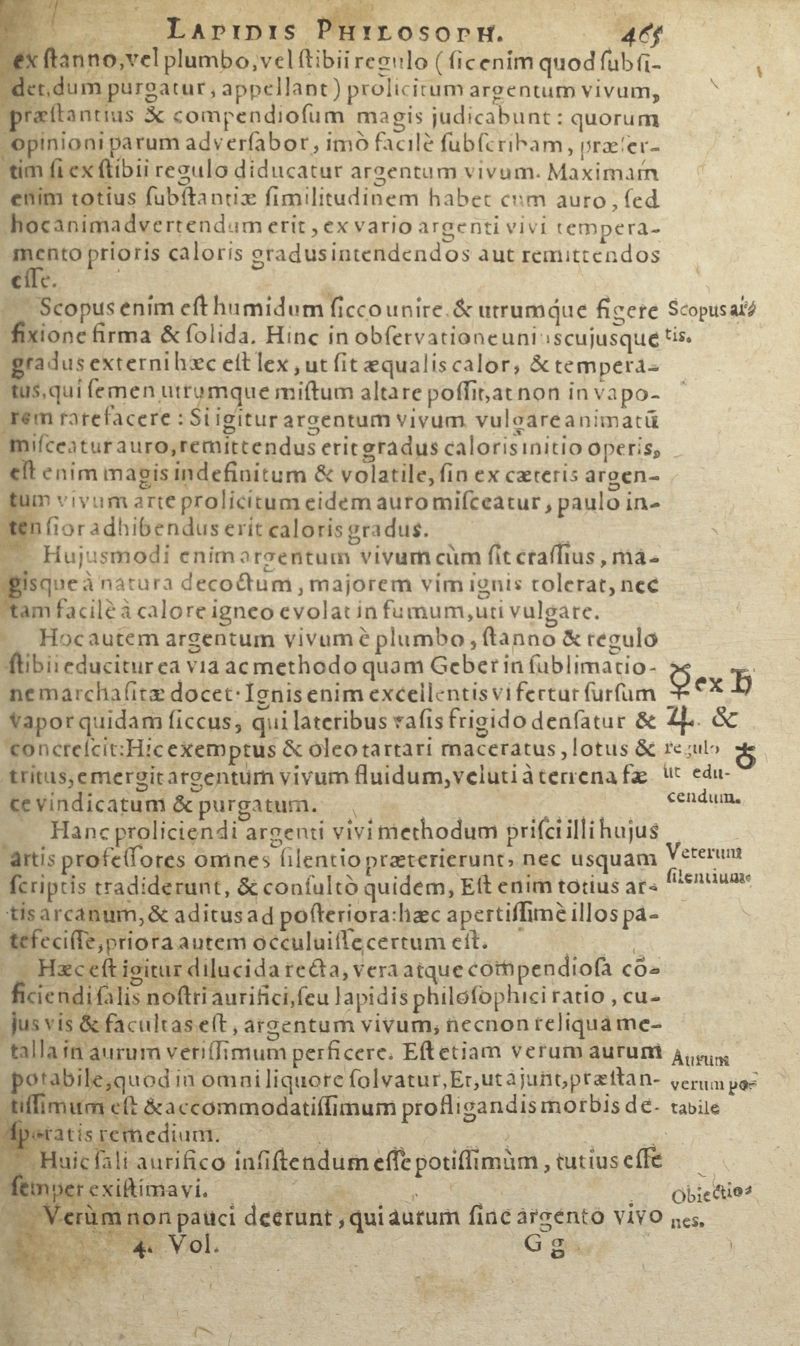 LAPIDIS PHILOSOPH. 465
ex ſtanno, vel plumbo, vel ſtibii regulo (ſic enim quod ſubſi-
det, dum purgatur, appellant) prolicitum argentum vivum,
præſtantius & compendioſum magis judicabunt: quorum
opinioni parum adverſabor, imò facilè ſubſcribam, præſer-
tim ſi ex ſtibii regulo diducatur argentum vivum. Maximam
enim totius ſubſtantiæ ſimilitudinem habet cum auro, ſed
hoc animadvertendum erit, ex vario argenti vivi tempera-
mento prioris caloris gradus intendendos aut remittendos
eſſe.
Scopus enim eſt humidum ſicco unire & utrumque figere
Scopus artis.
fixione firma & ſolida. Hinc in obſervatione uniuscujusque
gradus externi hæc eſt lex, ut ſit æqualis calor, & tempera-
tus, qui ſemen utrumque miſtum altare poſſit, at non in vapo-
rem rarefacere : Si igitur argentum vivum vulgare animatũ
miſceatur auro, remittendus erit gradus caloris initio operis,
eſt enim magis indefinitum & volatile, ſin ex cæteris argen-
tum vivum arte prolicitum eidem auro miſceatur, paulò in-
tenſior adhibendus erit caloris gradus.
Hujusmodi enim argentum vivum cùm ſit craſſius, ma-
gisque à natura decoctum, majorem vim ignis tolerat, nec
tam facilè à calore igneo evolat in fumum, uti vulgare.
Hoc autem argentum vivum è plumbo, ſtanno & regulo
ſtibii educitur ea via ac methodo quam Geber in ſublimatio-
ne marchaſitæ docet. Ignis enim excellentis vi fertur ſurſum
☿ ex ♄
vapor quidam ſiccus, qui lateribus vaſis frigido denſatur &
♃ &
concreſcit: Hic exemptus & oleo tartari maceratus, lotus &
regulo ♁
tritus, emergit argentum vivum fluidum, veluti à terrena fæ
ut edu-
ce vindicatum & purgatum.
cendum.
Hanc proliciendi argenti vivi methodum priſci illi hujus
artis profeſſores omnes ſilentio præterierunt, nec usquam
Veterum
ſcriptis tradiderunt, & conſultò quidem, Eſt enim totius ar-
ſilentium.
tis arcanum, & aditus ad poſteriora: hæc apertiſſimè illos pa-
tefeciſſe, priora autem occuluiſſe, certum eſt.
Hæc eſt igitur dilucida recta, vera atque compendioſa cõ-
ficiendi ſalis noſtri aurifici, ſeu lapidis philoſophici ratio, cu-
jus vis & facultas eſt, argentum vivum, necnon reliqua me-
talla in aurum veriſſimum perficere. Eſt etiam verum aurum
Aurum
potabile, quod in omni liquore ſolvatur, Et, ut ajunt, præſtan-
verum po-
tiſſimum eſt & accommodatiſſimum profligandis morbis de-
tabile
ſperatis remedium.
Huic ſali aurifico inſiſtendum eſſe potiſſimùm, tutius eſſe
ſemper exiſtimavi.
Obiectio-
Verùm non pauci deerunt, qui aurum ſine argento vivo
nes.
4. Vol. Gg